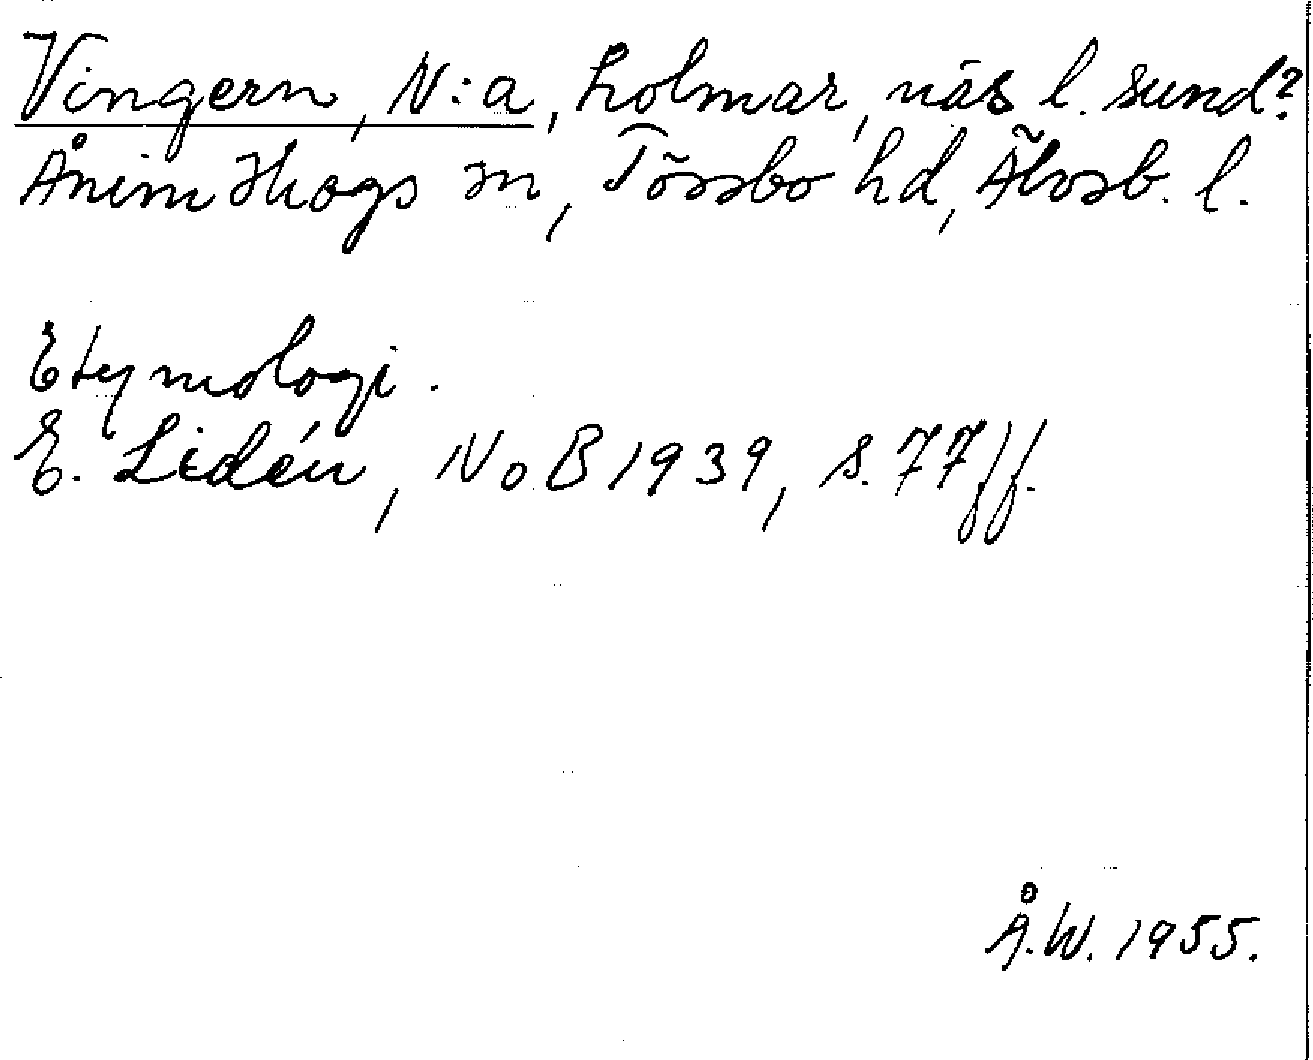 Vingern, N:a, holmar, näs l. sund?
Ånimskogs sn, Tössbo hd, Älvsb. l.
Etymologi.
E. Lidén, NoB 1939, s. 77 ff.
Å.W. 1955.